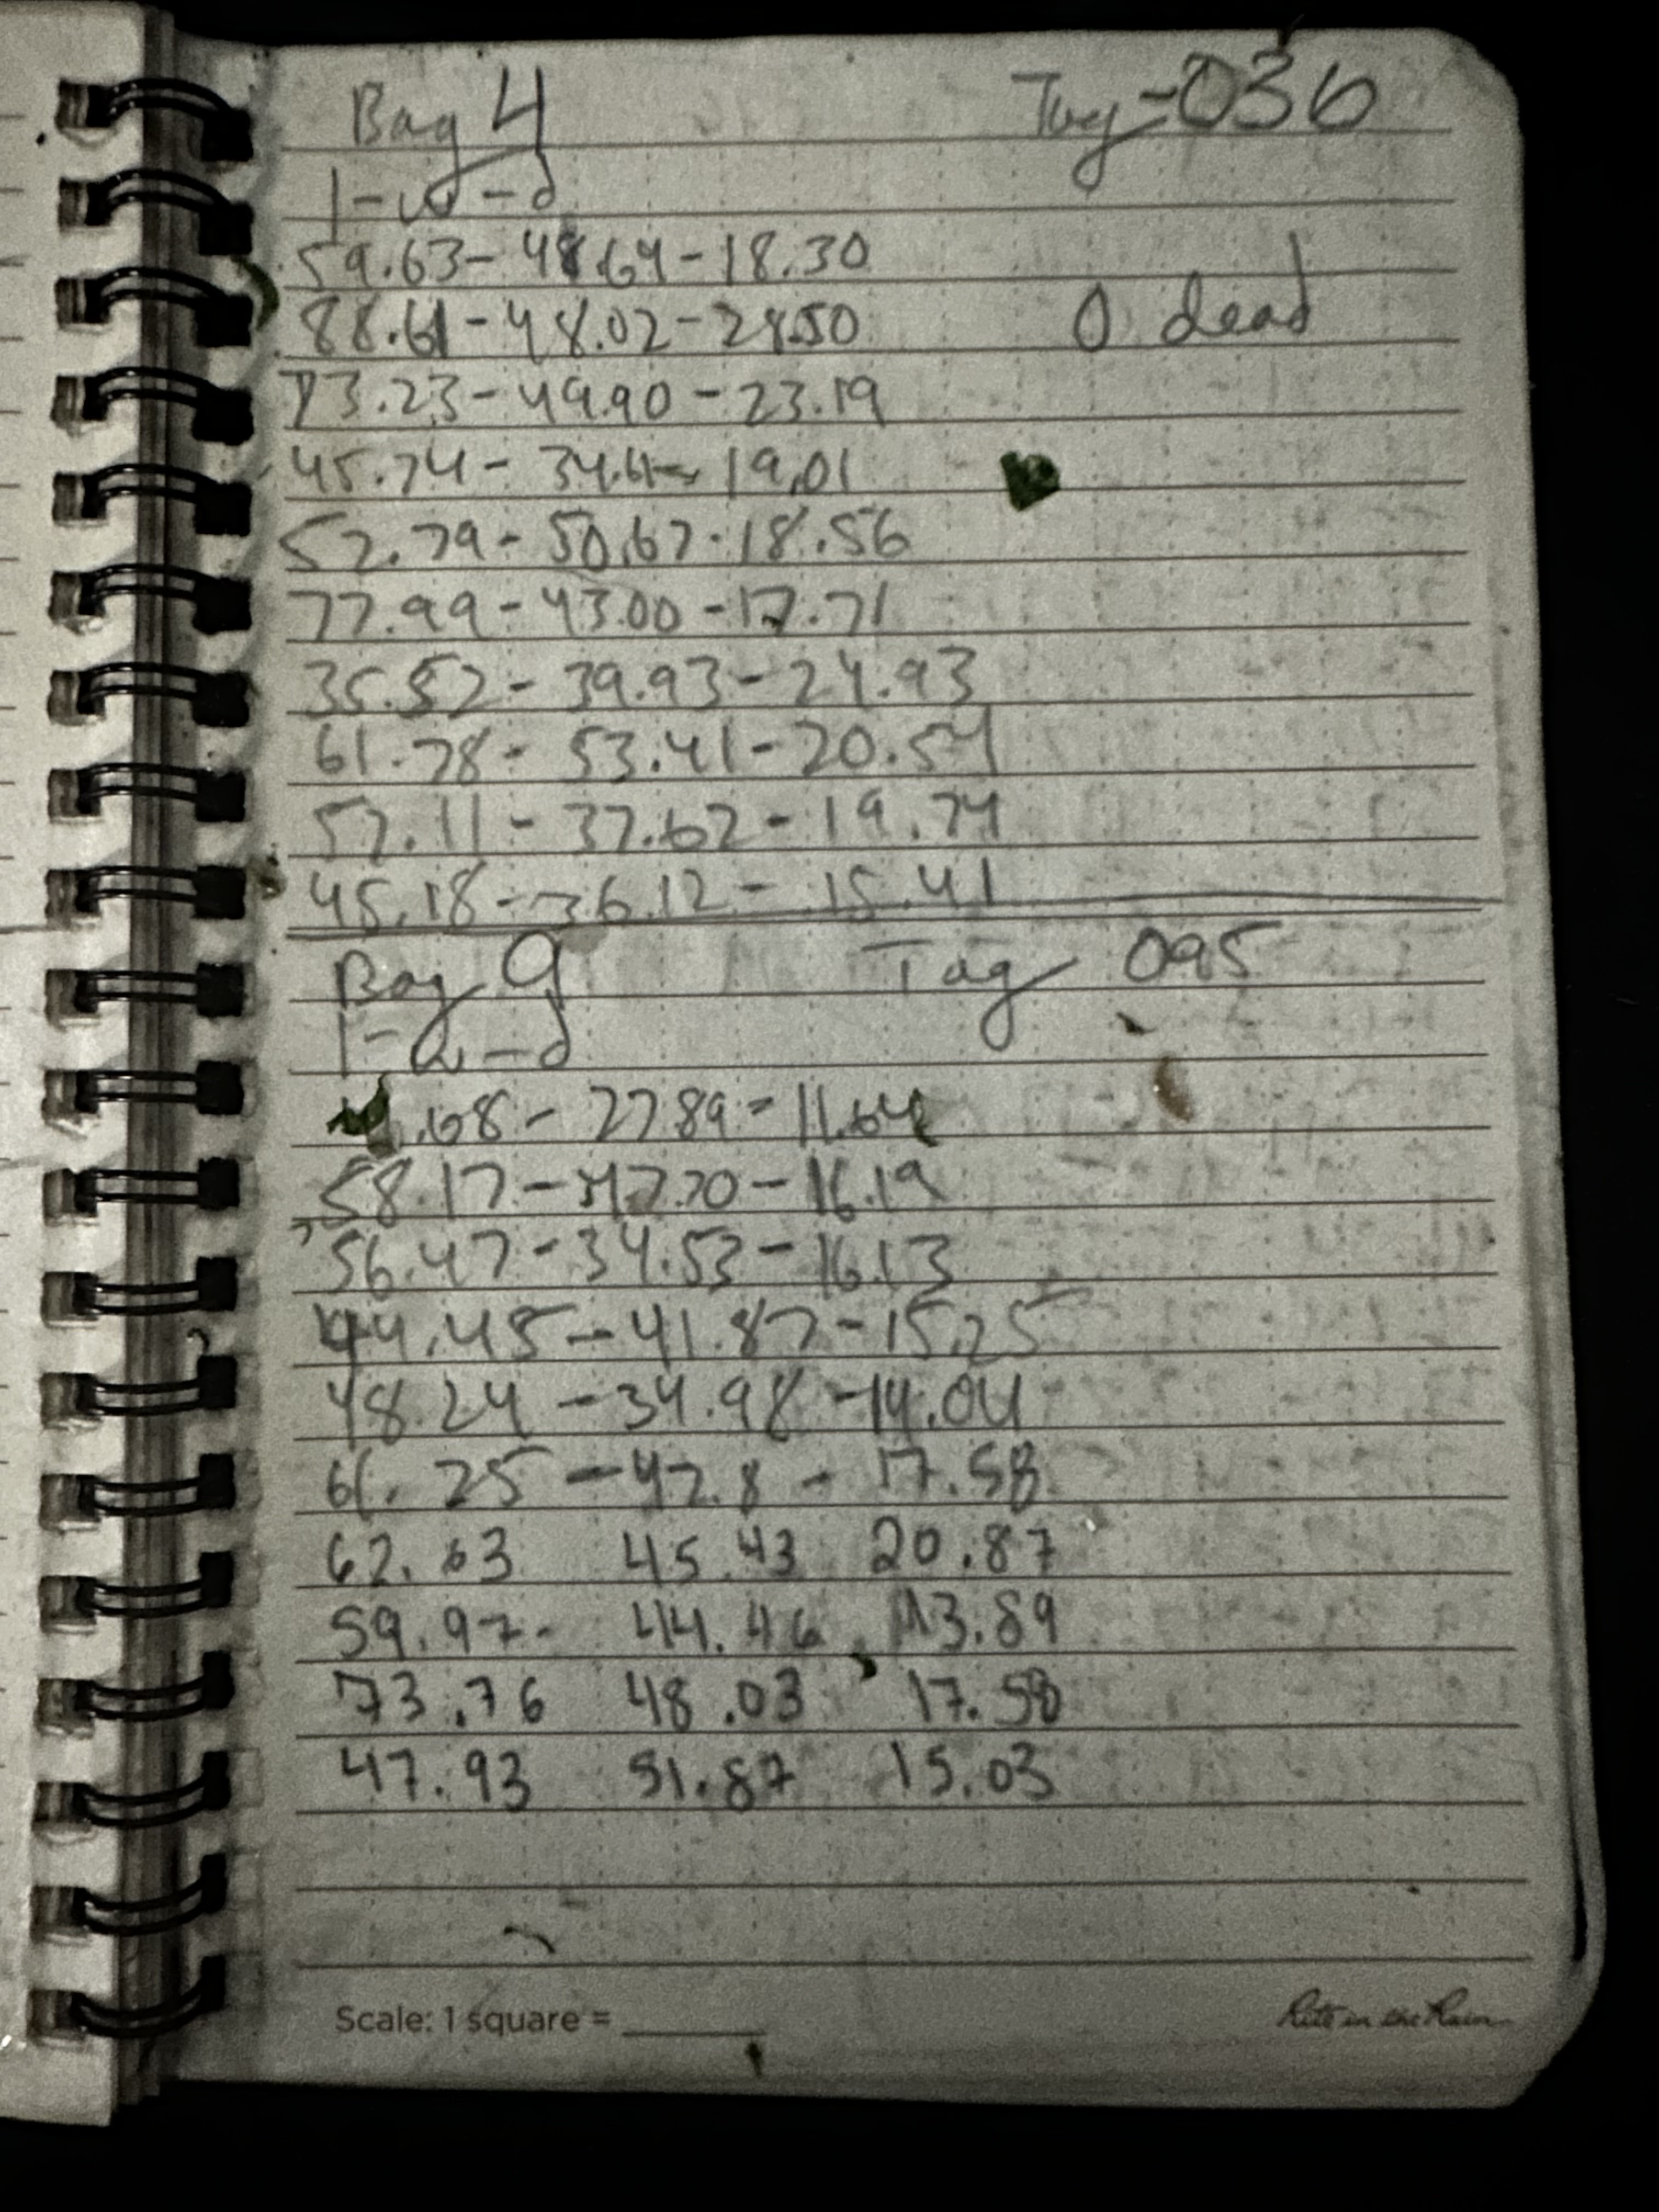 Bag 4 Tag - 036
l - w - d
59.63 - 48.64 - 18.30
88.61 - 48.02 - 28.50 0 dead
73.23 - 49.90 - 23.19
45.74 - 34.61 - 19.01
52.79 - 50.67 - 18.56
77.99 - 43.00 - 17.71
35.52 - 39.93 - 24.93
61.78 - 53.41 - 20.54
57.11 - 37.62 - 19.74
45.18 - 36.12 - 15.41
Bag 9 Tag 095
l - w - d
.68 - 27.89 - 11.64
58.17 - 47.70 - 16.19
56.47 - 34.53 - 16.13
44.45 - 41.87 - 15.25
48.24 - 34.98 - 14.04
61.25 - 42.8 - 17.58
62.63 45.43 20.87
59.97 44.46 13.89
73.76 48.03 17.58
47.93 51.87 15.03
Scale: 1 square =
Rite in the Rain